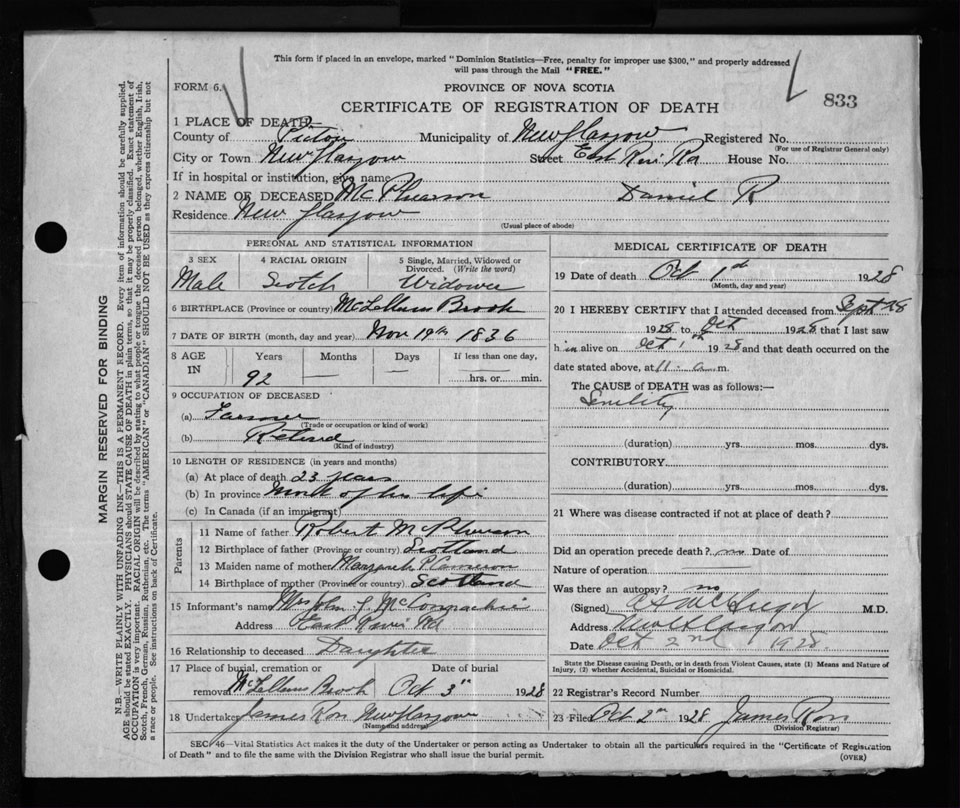 This form if placed in an envelope, marked "Dominion Statistics—Free, penalty for improper use $300," and properly addressed
will pass through the Mail "FREE."
FORM 6.
PROVINCE OF NOVA SCOTIA
CERTIFICATE OF REGISTRATION OF DEATH
833
1 PLACE OF DEATH
County of Pictou Municipality of New Glasgow Registered No.
(For use of Registrar General only)
City or Town New Glasgow Street East River Rd House No.
If in hospital or institution, give name
2 NAME OF DECEASED McPherson Daniel R
Residence New Glasgow
(Usual place of abode)
PERSONAL AND STATISTICAL INFORMATION
3 SEX 4 RACIAL ORIGIN 5 Single, Married, Widowed or
Divorced. (Write the word)
Male Scotch Widower
6 BIRTHPLACE (Province or country) McLellans Brook
7 DATE OF BIRTH (month, day and year) Nov 19th 1836
8 AGE IN Years Months Days If less than one day,
92 — — hrs. or min.
9 OCCUPATION OF DECEASED
(a) Farmer
(Trade or occupation or kind of work)
(b) Retired
(Kind of industry)
10 LENGTH OF RESIDENCE (in years and months)
(a) At place of death 23 years
(b) In province most of his life
(c) In Canada (if an immigrant)
Parents
11 Name of father Robert McPherson
12 Birthplace of father (Province or country) Scotland
13 Maiden name of mother Margaret Cameron
14 Birthplace of mother (Province or country) Scotland
15 Informant's name Mrs John
Address East River Rd
16 Relationship to deceased Daughter
17 Place of burial, cremation or Date of burial
removal McLellans Brook Oct 3rd 1928
18 Undertaker James Ross New Glasgow
(Name and address)
MEDICAL CERTIFICATE OF DEATH
19 Date of death Oct 1st 1928
(Month, day and year)
20 I HEREBY CERTIFY that I attended deceased from Sept 28
1928 to Oct 1928 that I last saw
h im alive on Oct 1st 1928 and that death occurred on the
date stated above, at 11 a m.
The CAUSE of DEATH was as follows:—
Senility
(duration) yrs. mos. dys.
CONTRIBUTORY
(duration) yrs. mos. dys.
21 Where was disease contracted if not at place of death?
Did an operation precede death? no Date of
Nature of operation
Was there an autopsy? no
(Signed) McGregor M.D.
Address New Glasgow
Date Oct 2nd 1928.
State the Disease causing Death, or in death from Violent Causes, state (1) Means and Nature of
Injury, (2) whether Accidental, Suicidal or Homicidal.
22 Registrar's Record Number
23 Filed Oct 2nd 1928 James Ross
(Division Registrar)
SEC. 46—Vital Statistics Act makes it the duty of the Undertaker or person acting as Undertaker to obtain all the particulars required in the "Certificate of Registration
of Death" and to file the same with the Division Registrar who shall issue the burial permit.
(OVER)
MARGIN RESERVED FOR BINDING
N.B.—WRITE PLAINLY WITH UNFADING INK—THIS IS A PERMANENT RECORD. Every item of information should be carefully supplied.
AGE should be stated EXACTLY. PHYSICIANS should STATE CAUSE OF DEATH in plain terms, so that it may be properly classified. Exact statement of
OCCUPATION is very important. RACIAL ORIGIN will be described by stating to what people or tongue the deceased person belonged, whether English, Irish,
Scotch, French, German, Russian, Ruthenian, etc. The terms "AMERICAN" or "CANADIAN" SHOULD NOT BE USED as they express citizenship but not
a race or people. See instructions on back of Certificate.